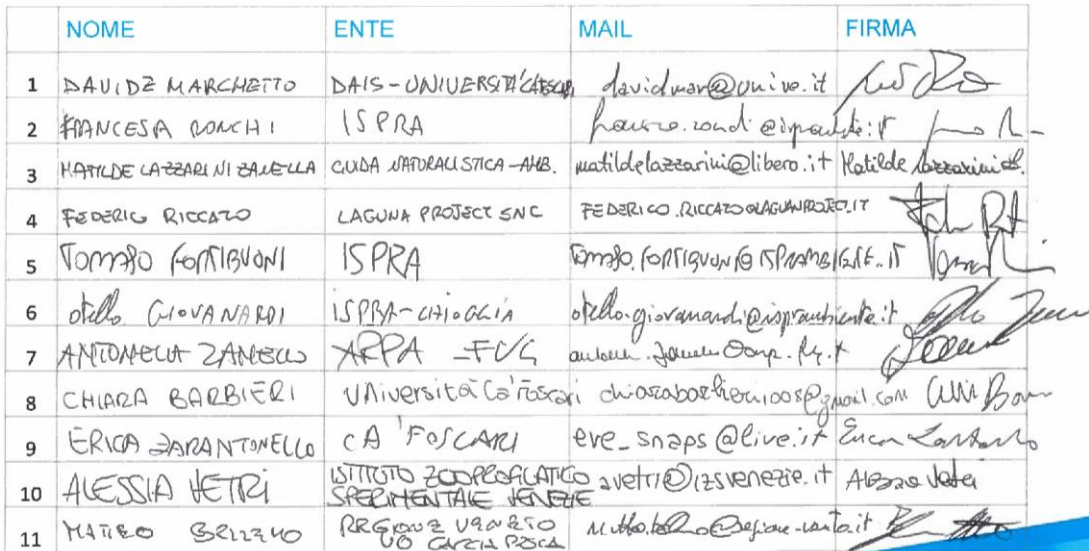 NOME ENTE MAIL FIRMA
1 DAVIDE MARCHETTO DAIS-UNIVERSITÀ CA'FOSCARI davidmar@unive.it
2 FRANCESCA RONCHI ISPRA
3 MATILDE LAZZARINI ZANELLA GUIDA NATURALISTICA-AMB. matildelazzarini@libero.it Matilde Lazzarini Z.
4 FEDERICO RICCATO LAGUNA PROJECT SNC FEDERICO.RICCATO@LAGUNAPROJECT.IT
5 TOMASO FORTIBUONI ISPRA TOMASO.FORTIBUONI@ISPRAMBIENTE.IT
6 otello GIOVANARDI ISPRA-CHIOGGIA otello.giovanardi@isprambiente.it
7 ANTONELLA ZANELLO ARPA FVG
8 CHIARA BARBIERI UNiversità Ca'Foscari chiarabarbieri005@gmail.com
9 ERICA ZARANTONELLO CA' FOSCARI eve_snaps@live.it Erica Zarantonello
10 ALESSIA VETRI ISTITUTO ZOOPROFILATICO avetri@izsvenezie.it Alessia Vetri
SPERIMENTALE VENEZIE
11 MATTEO REGIONE VENETO
UO CACCIA PESCA